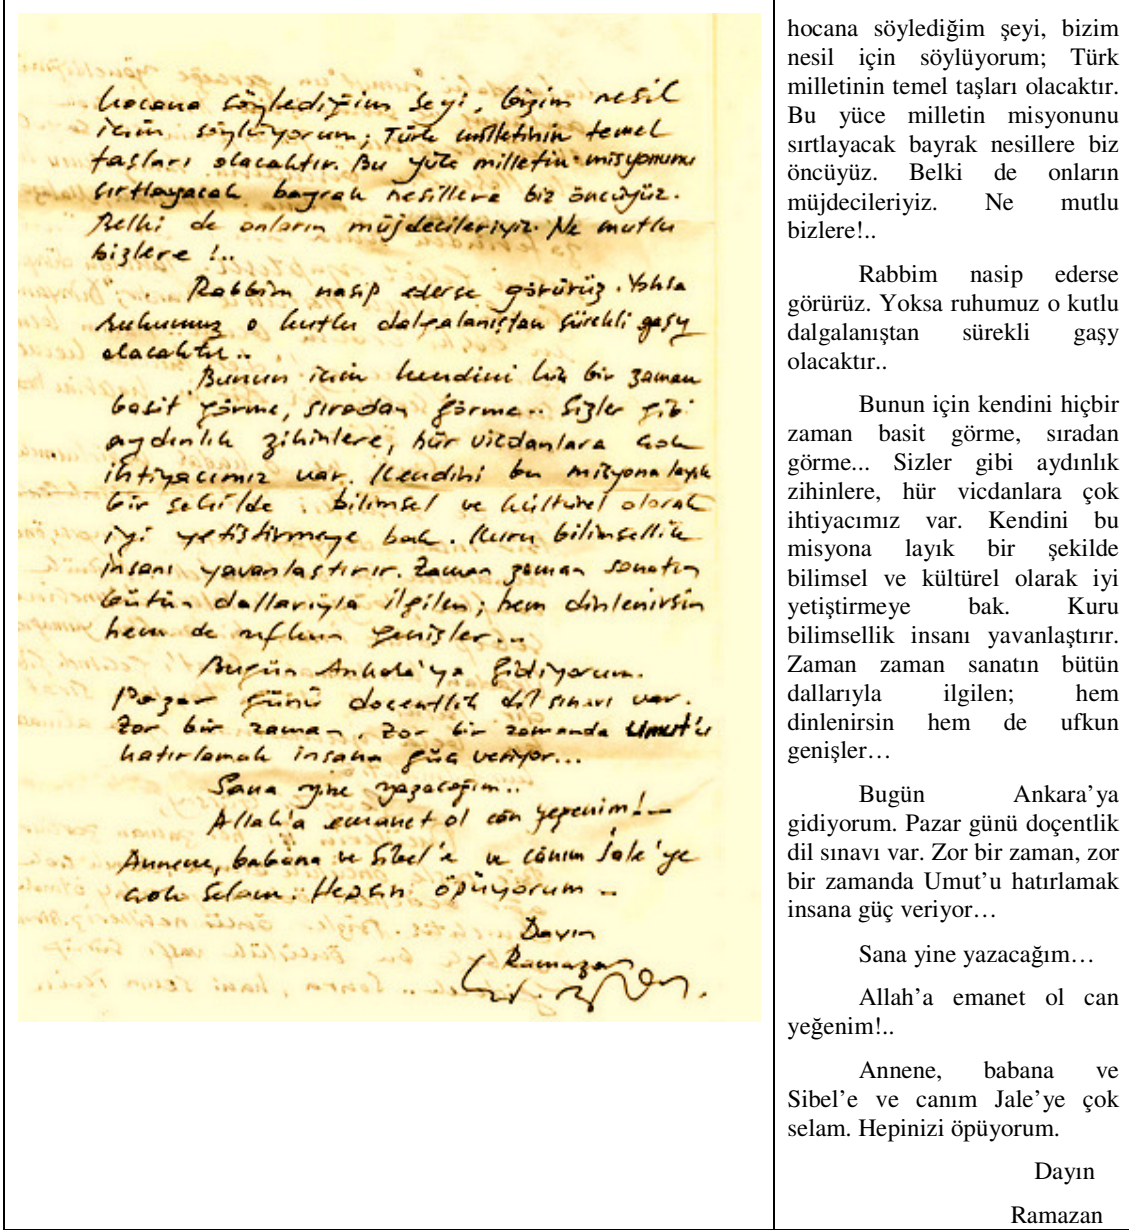 hocana söylediğim şeyi, bizim nesil
için söylüyorum; Türk milletinin temel
taşları olacaktır. Bu yüce milletin misyonunu
sırtlayacak bayrak nesillere biz öncüyüz.
Belki de onların müjdecileriyiz. Ne mutlu
bizlere !..
Rabbim nasip ederse görürüz. Yoksa
ruhumuz o kutlu dalgalanıştan sürekli gaşy
olacaktır..
Bunun için kendini hiç bir zaman
basit görme, sıradan görme.. Sizler gibi
aydınlık zihinlere, hür vicdanlara çok
ihtiyacımız var. Kendini bu misyona layık
bir şekilde ; bilimsel ve kültürel olarak
iyi yetiştirmeye bak. Kuru bilimsellik
insanı yavanlaştırır. Zaman zaman sanatın
bütün dallarıyla ilgilen; hem dinlenirsin
hem de ufkun genişler...
Bugün Ankara'ya gidiyorum.
Pazar günü doçentlik dil sınavı var.
Zor bir zaman, zor bir zamanda Umut'u
hatırlamak insana güç veriyor...
Sana yine yazacağım..
Allah'a emanet ol can yeğenim!..
Annene, babana ve Sibel'e ve canım Jale'ye
çok selam. Hepinizi öpüyorum ..
Dayın
Ramazan
hocana söylediğim şeyi, bizim
nesil için söylüyorum; Türk
milletinin temel taşları olacaktır.
Bu yüce milletin misyonunu
sırtlayacak bayrak nesillere biz
öncüyüz. Belki de onların
müjdecileriyiz. Ne mutlu
bizlere!..
Rabbim nasip ederse
görürüz. Yoksa ruhumuz o kutlu
dalgalanıştan sürekli gaşy
olacaktır..
Bunun için kendini hiçbir
zaman basit görme, sıradan
görme... Sizler gibi aydınlık
zihinlere, hür vicdanlara çok
ihtiyacımız var. Kendini bu
misyona layık bir şekilde
bilimsel ve kültürel olarak iyi
yetiştirmeye bak. Kuru
bilimsellik insanı yavanlaştırır.
Zaman zaman sanatın bütün
dallarıyla ilgilen; hem
dinlenirsin hem de ufkun
genişler…
Bugün Ankara’ya
gidiyorum. Pazar günü doçentlik
dil sınavı var. Zor bir zaman, zor
bir zamanda Umut’u hatırlamak
insana güç veriyor…
Sana yine yazacağım…
Allah’a emanet ol can
yeğenim!..
Annene, babana ve
Sibel’e ve canım Jale’ye çok
selam. Hepinizi öpüyorum.
Dayın
Ramazan